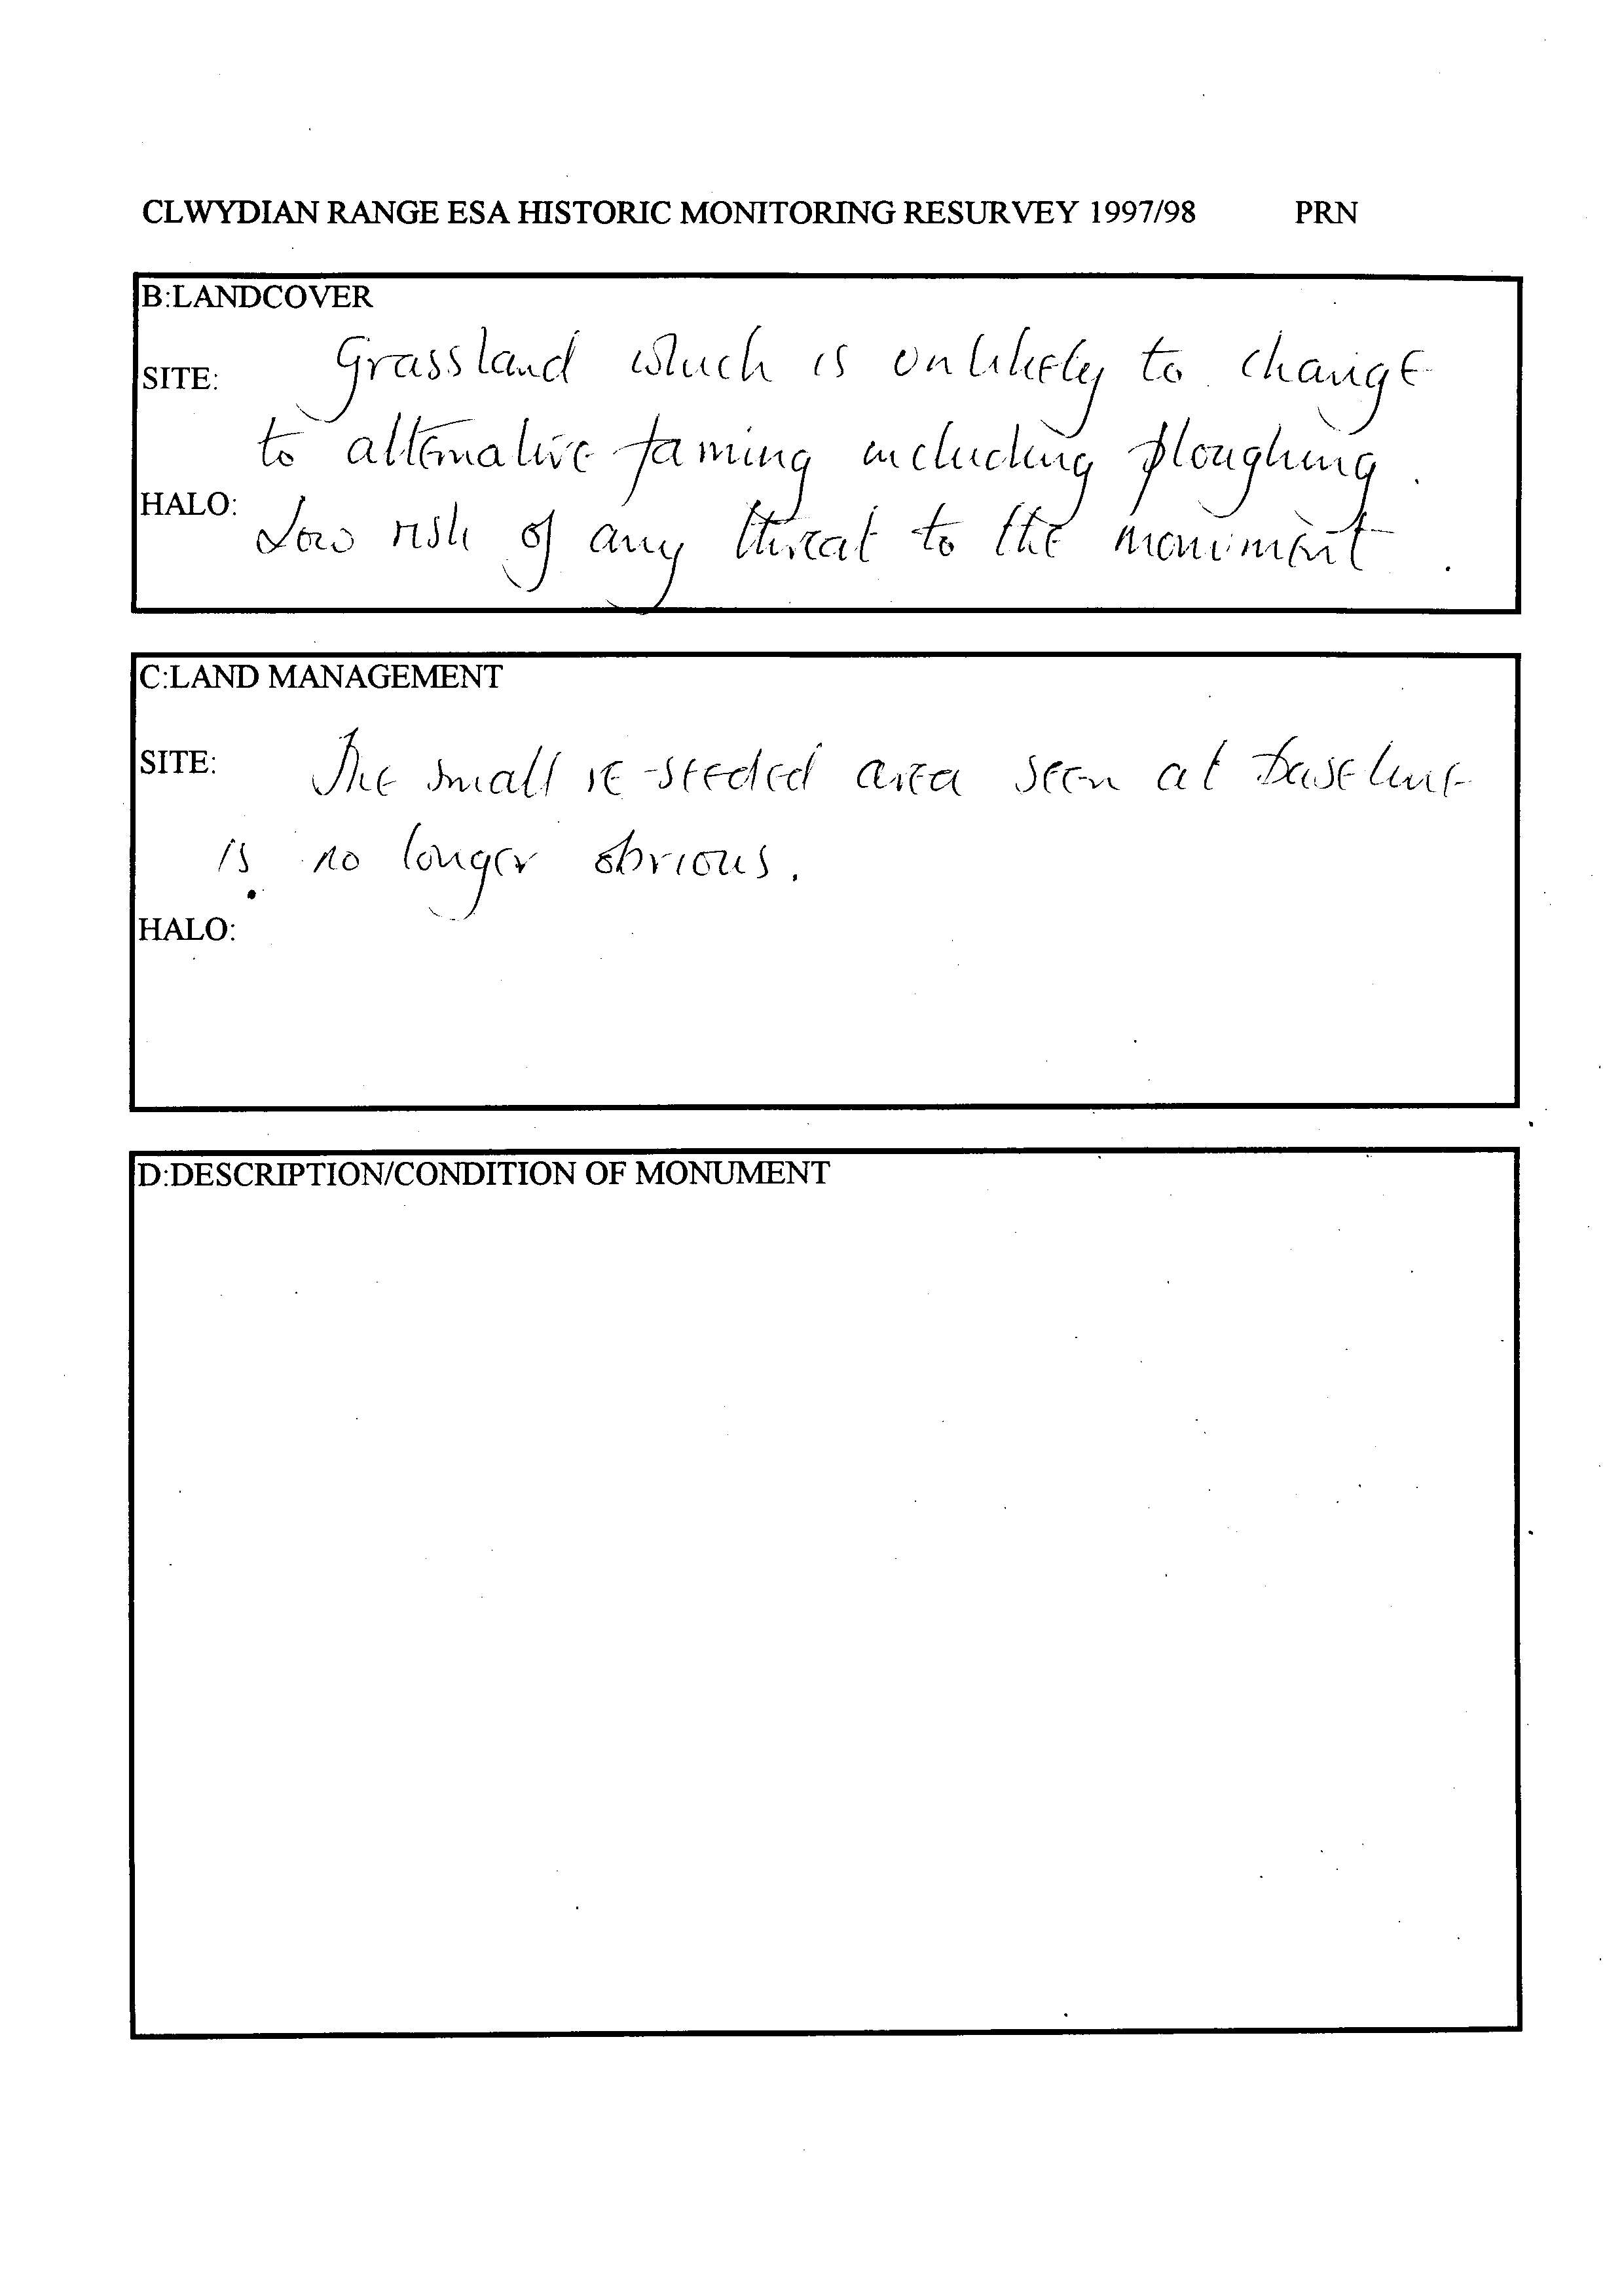 CLWYDIAN RANGE ESA HISTORIC MONITORING RESURVEY 1997/98 PRN
B:LANDCOVER
SITE: Grassland which is unlikely to change
to alternative faming including ploughing.
HALO: Low risk of any threat to the monument.
C:LAND MANAGEMENT
SITE: The small re-seeded area seen at baseline
is no longer obvious.
HALO:
D:DESCRIPTION/CONDITION OF MONUMENT